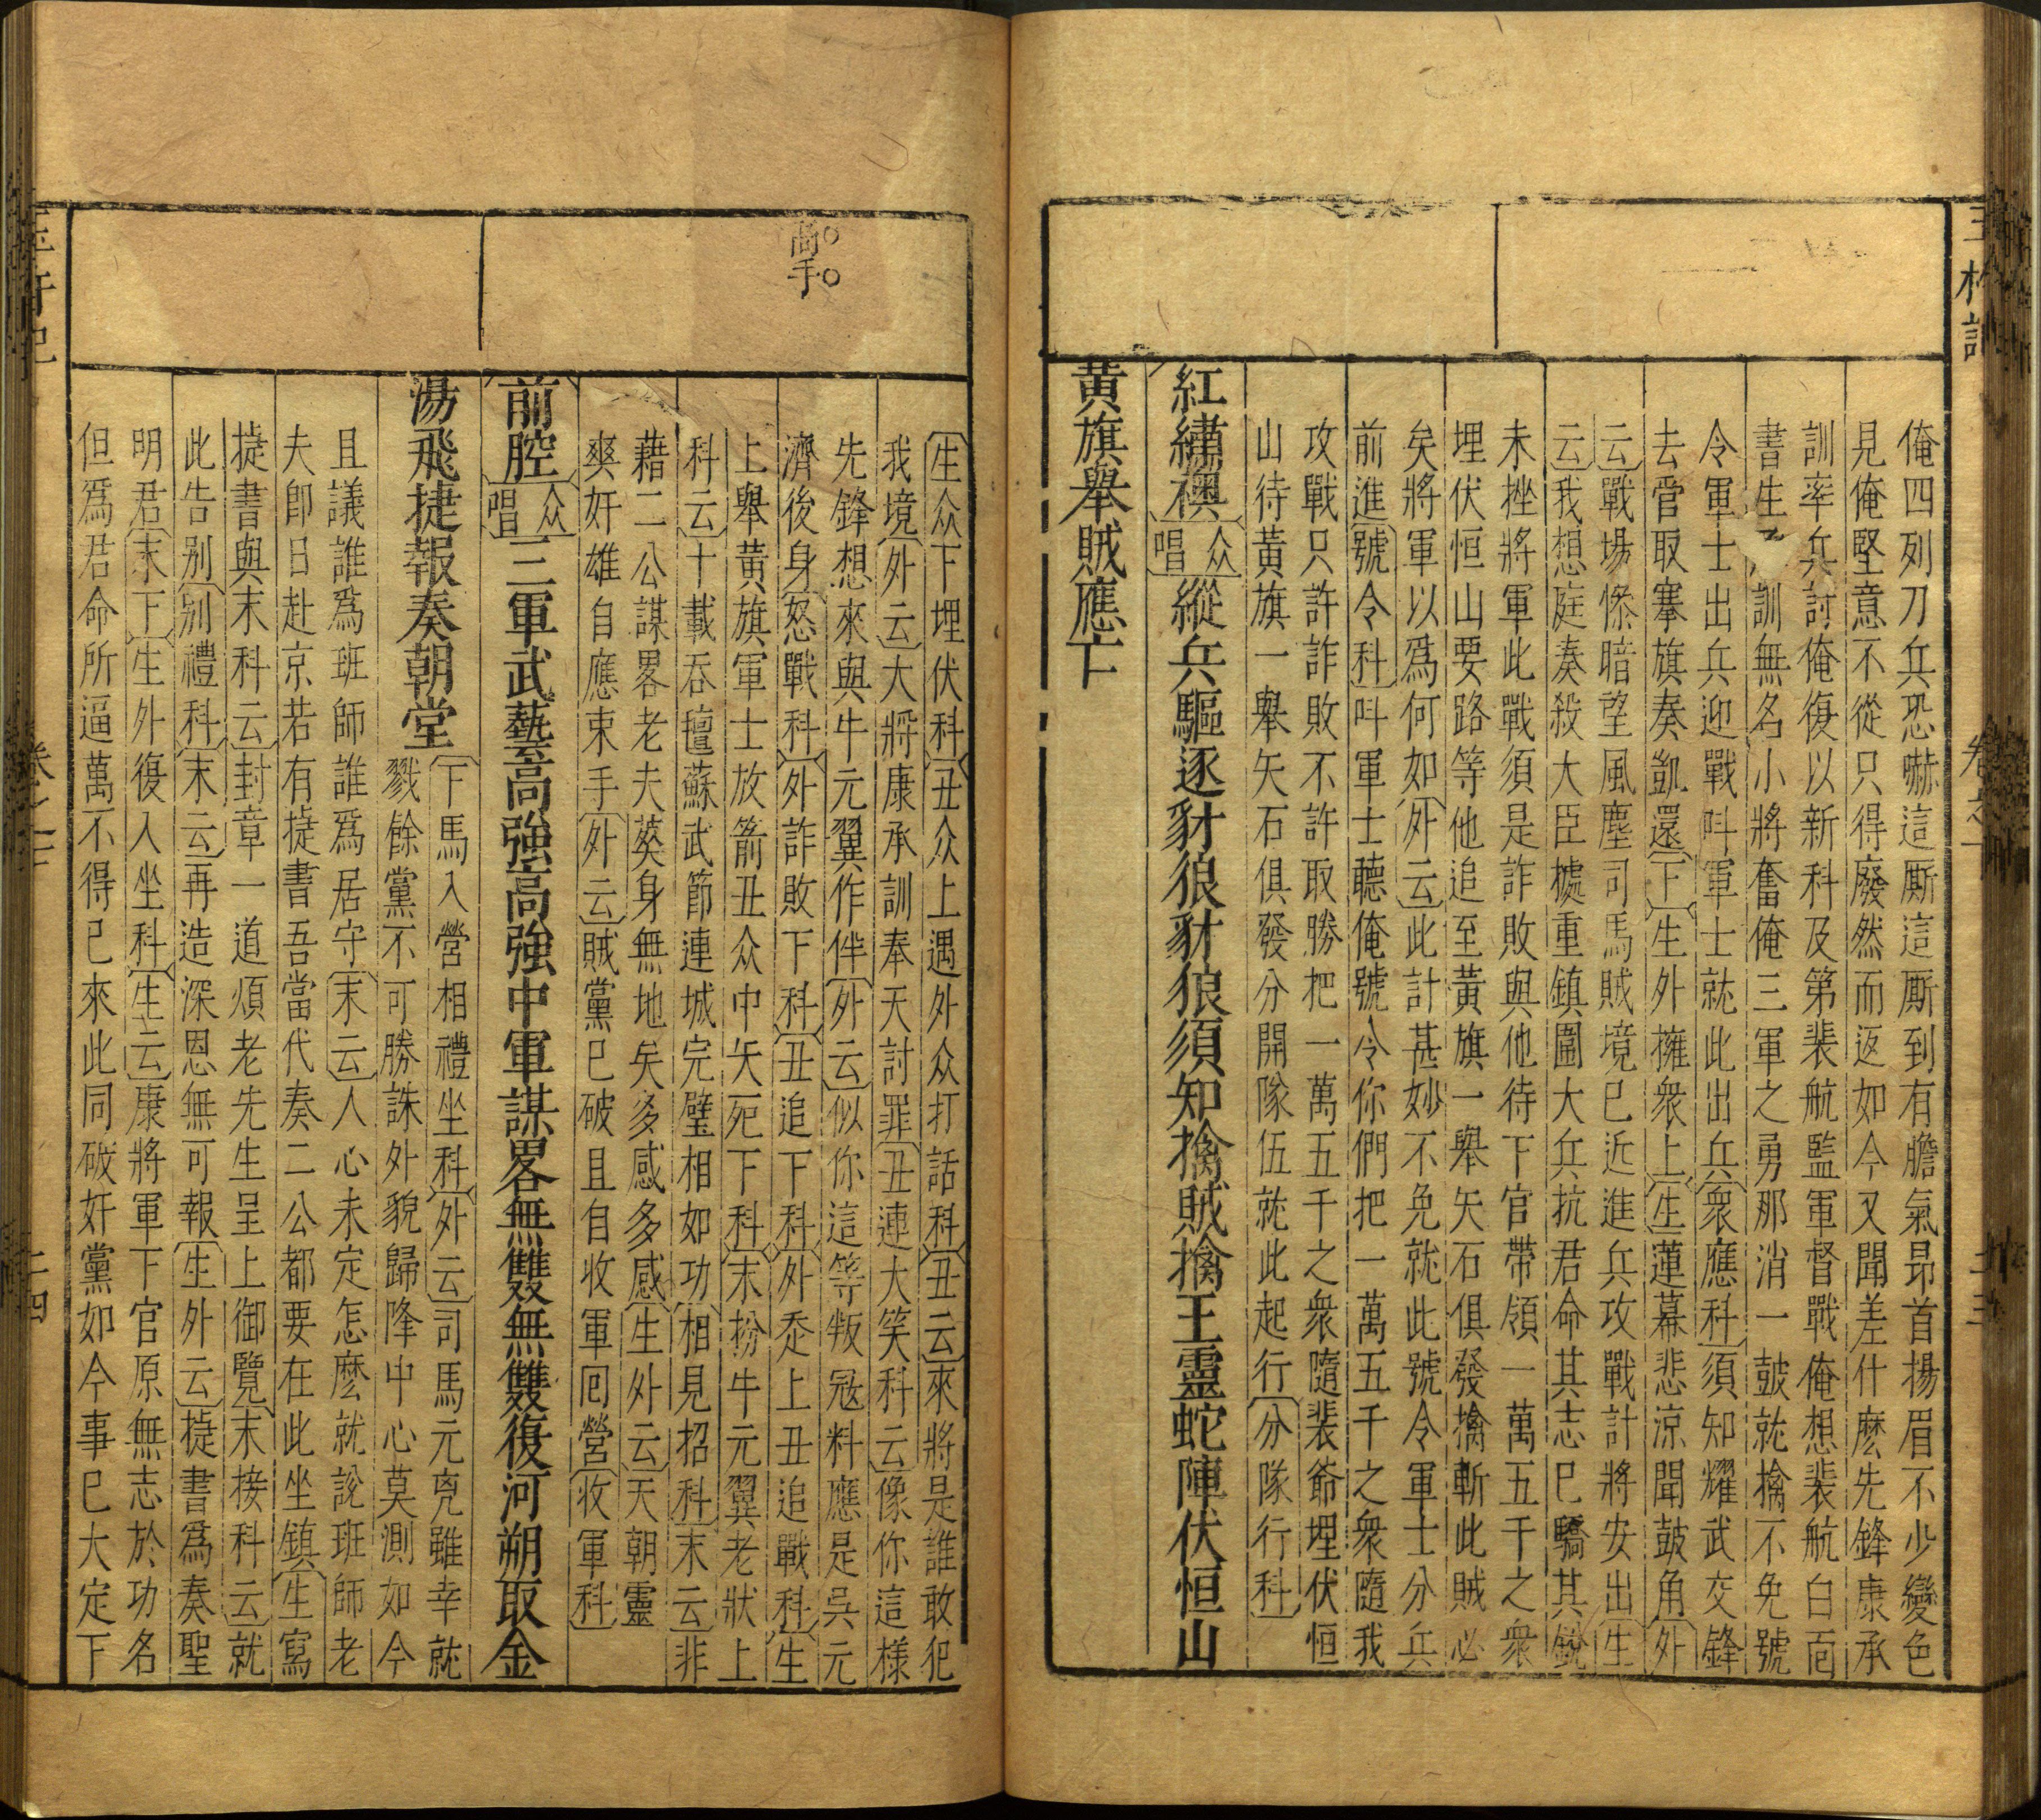 玉杵記
卷之一
二三
俺四列刀兵恐嚇這厮這厮到有膽氣昻首揚眉不少變色
見俺堅意不從只得廢然而返如今又聞差什麽先鋒康承
訓率兵討俺復以新科及第裴航監軍督戰俺想裴航白面
書生訓無名小將奮俺三軍之勇那消一皷就擒不免號
令軍士出兵迎戰叫軍士就此出兵衆應科須知耀武交鋒
去管取搴旗奏凱還下生外擁衆上生蓮幕悲涼聞皷角外
云戰場慘暗望風塵司馬賊境已近進兵攻戰計將安出生
云我想庭奏殺大臣㨿重鎮圖大兵抗君命其志已驕其銳
未挫將軍此戰須是詐敗與他待下官帶領一萬五千之衆
埋伏恒山要路等他追至黃旗一舉矢石俱發擒斬此賊必
矣將軍以爲何如外云此計甚妙不免就此號令軍士分兵
前進號令科叫軍士聽俺號令你們把一萬五千之衆隨我
攻戰只許詐敗不許取勝把一萬五千之衆隨裴爺埋伏恒
山待黃旗一舉矢石俱發分開隊伍就此起行分隊行科
紅繡襖众唱縱兵驅逐豺狼豺狼須知擒賊擒王靈蛇陣伏恒山
黃旗舉賊應亡
高手
生众下埋伏科丑众上遇外众打話科丑云來將是誰敢犯
我境外云大將康承訓奉天討罪丑連大笑科云像你這樣
先鋒想來與牛元翼作伴外云似你這等叛冦料應是吳元
濟後身怒戰科外詐敗下科丑追下科外忝上丑追戰科生
上舉黃旗軍士放箭丑众中矢死下科末扮牛元翼老狀上
科云十載吞氊蘇武節連城完璧相如功相見招科末云非
藉二公謀畧老夫葬身無地矣多感多感生外云天朝靈
爽奸雄自應束手外云賊黨已破且自收軍囘營收軍科
前腔众唱三軍武藝高強高強中軍謀畧無雙無雙復河朔取金
湯飛捷報奏朝堂下馬入營相禮坐科外云司馬元兇雖幸就
戮餘黨不可勝誅外貌歸降中心莫測如今
且議誰爲班師誰爲居守末云人心未定怎麽就說班師老
夫卽日赴京若有㨗書吾當代奏二公都要在此坐鎮生寫
㨗書與末科云封章一道煩老先生呈上御覽末接科云就
此告別別禮科末云再造深恩無可報生外云㨗書爲奏聖
明君末下生外復入坐科生云康將軍下官原無志於功名
但爲君命所逼萬不得已來此同破奸黨如今事已大定下
玉杵記
卷之一
二四